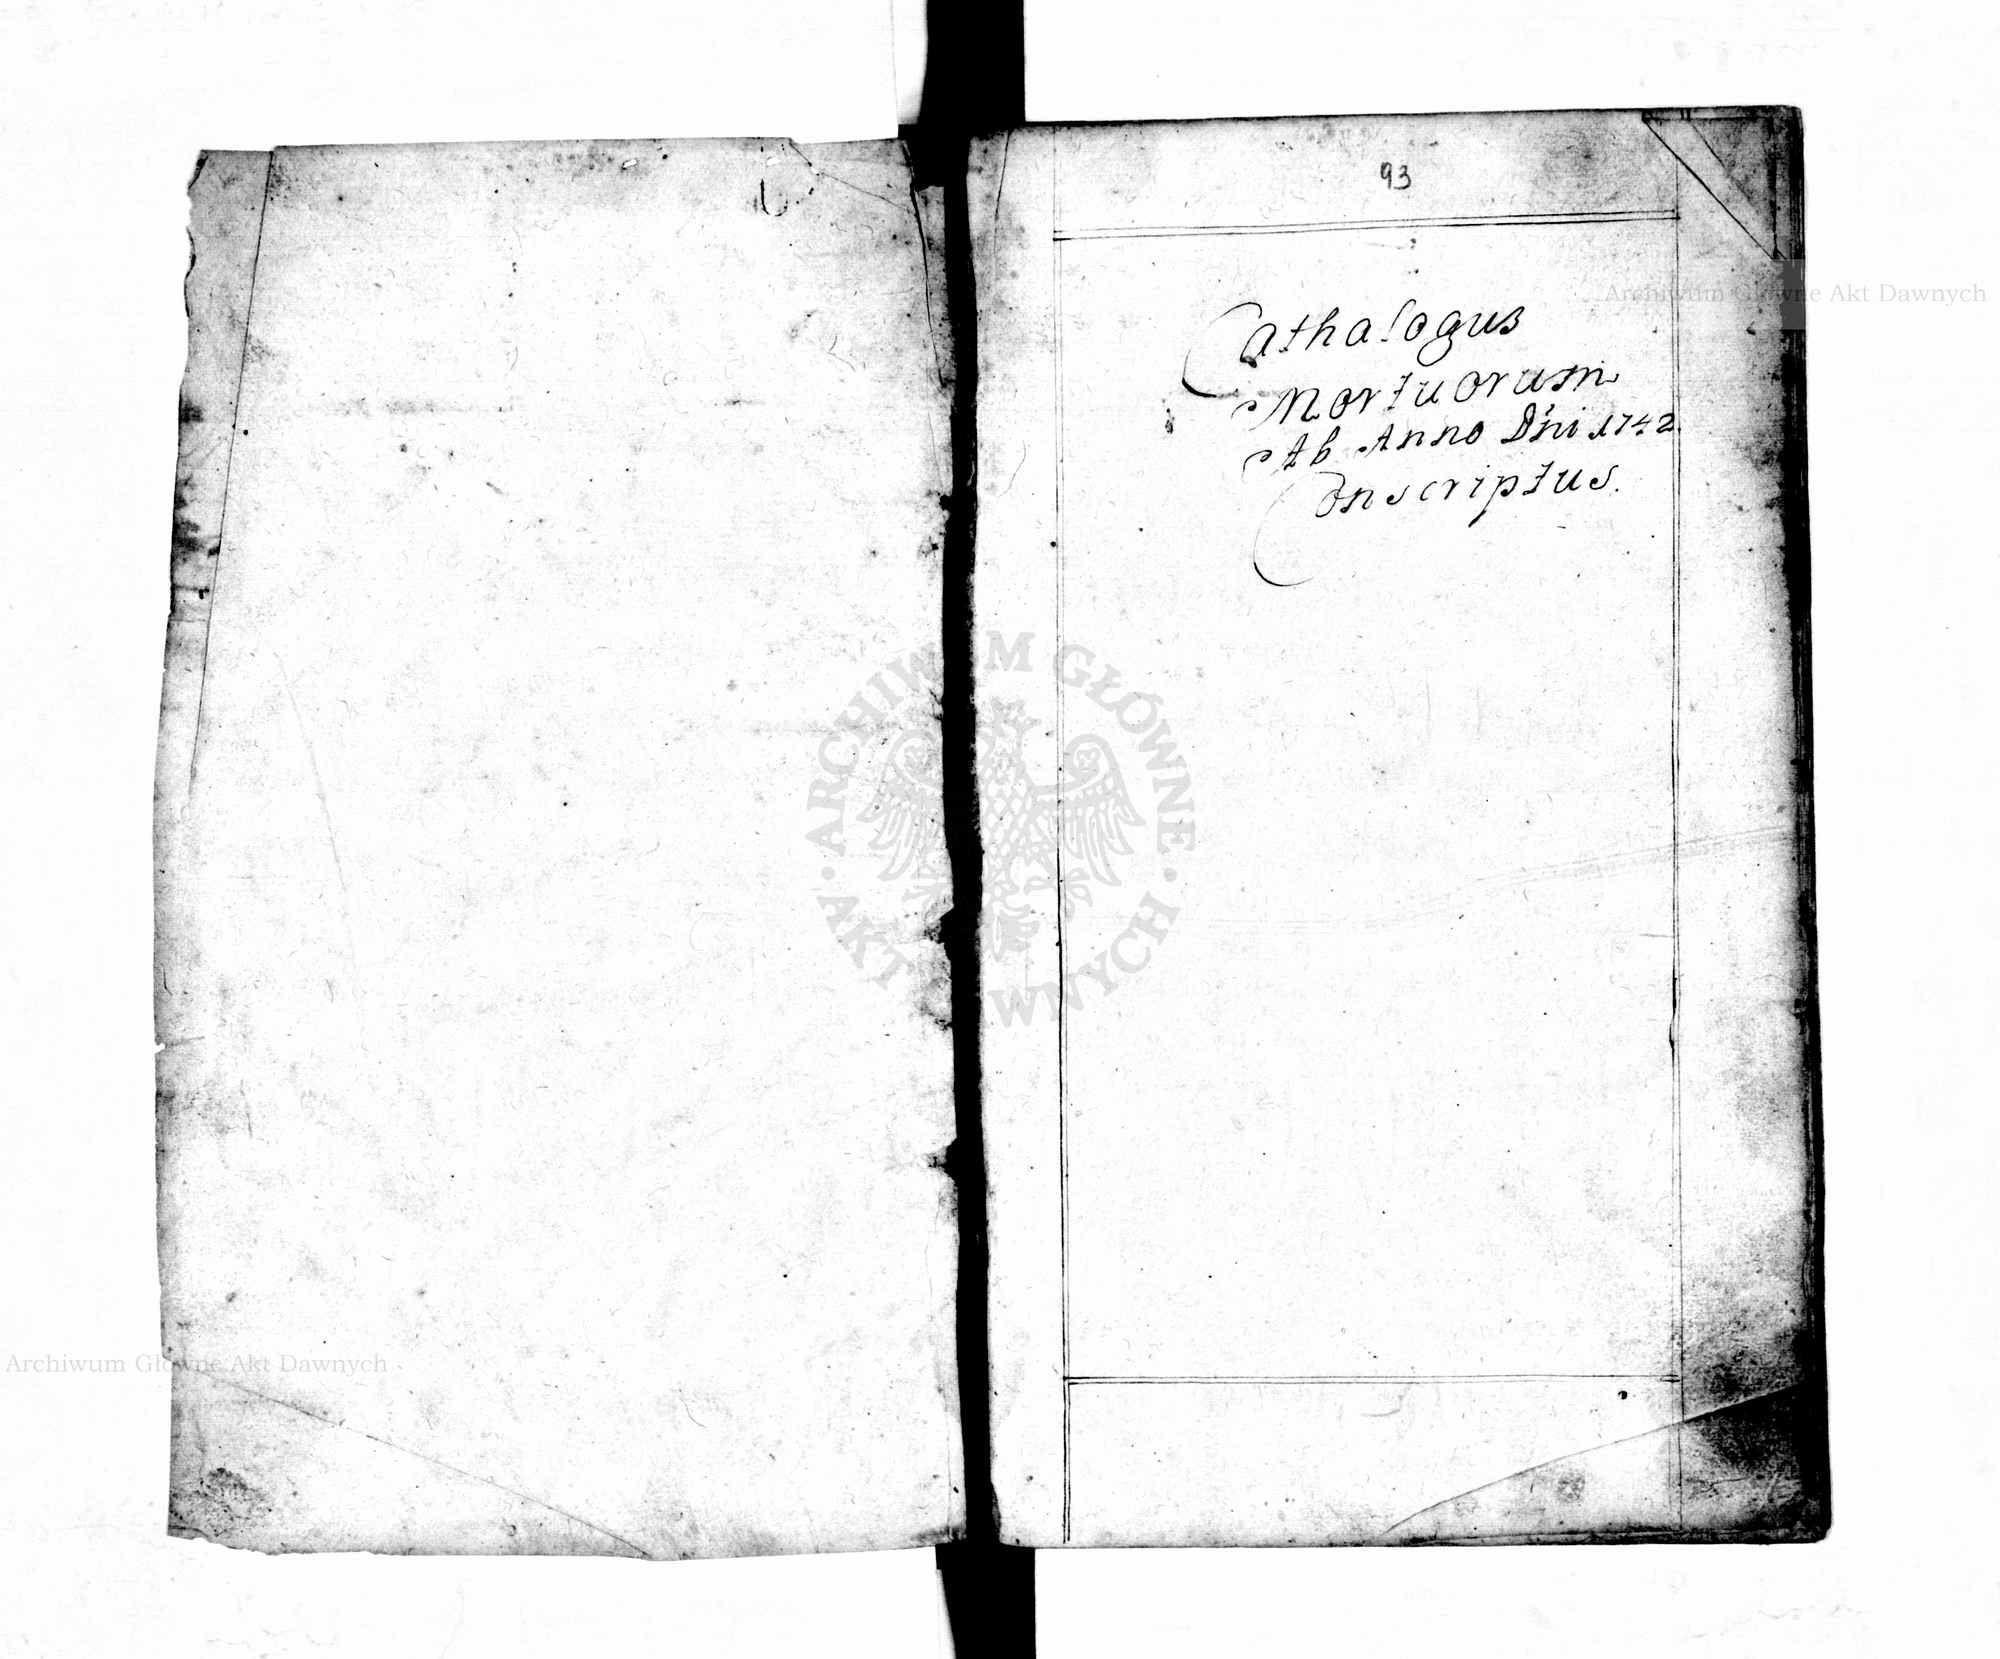 93
Cathalogus
Mortuorum
Ab Anno Dñi 1742.
Conscriptus.
Archiwum Główne Akt Dawnych
ARCHIWUM GŁÓWNE
AKT WNYCH
Archiwum Główne Akt Dawnych